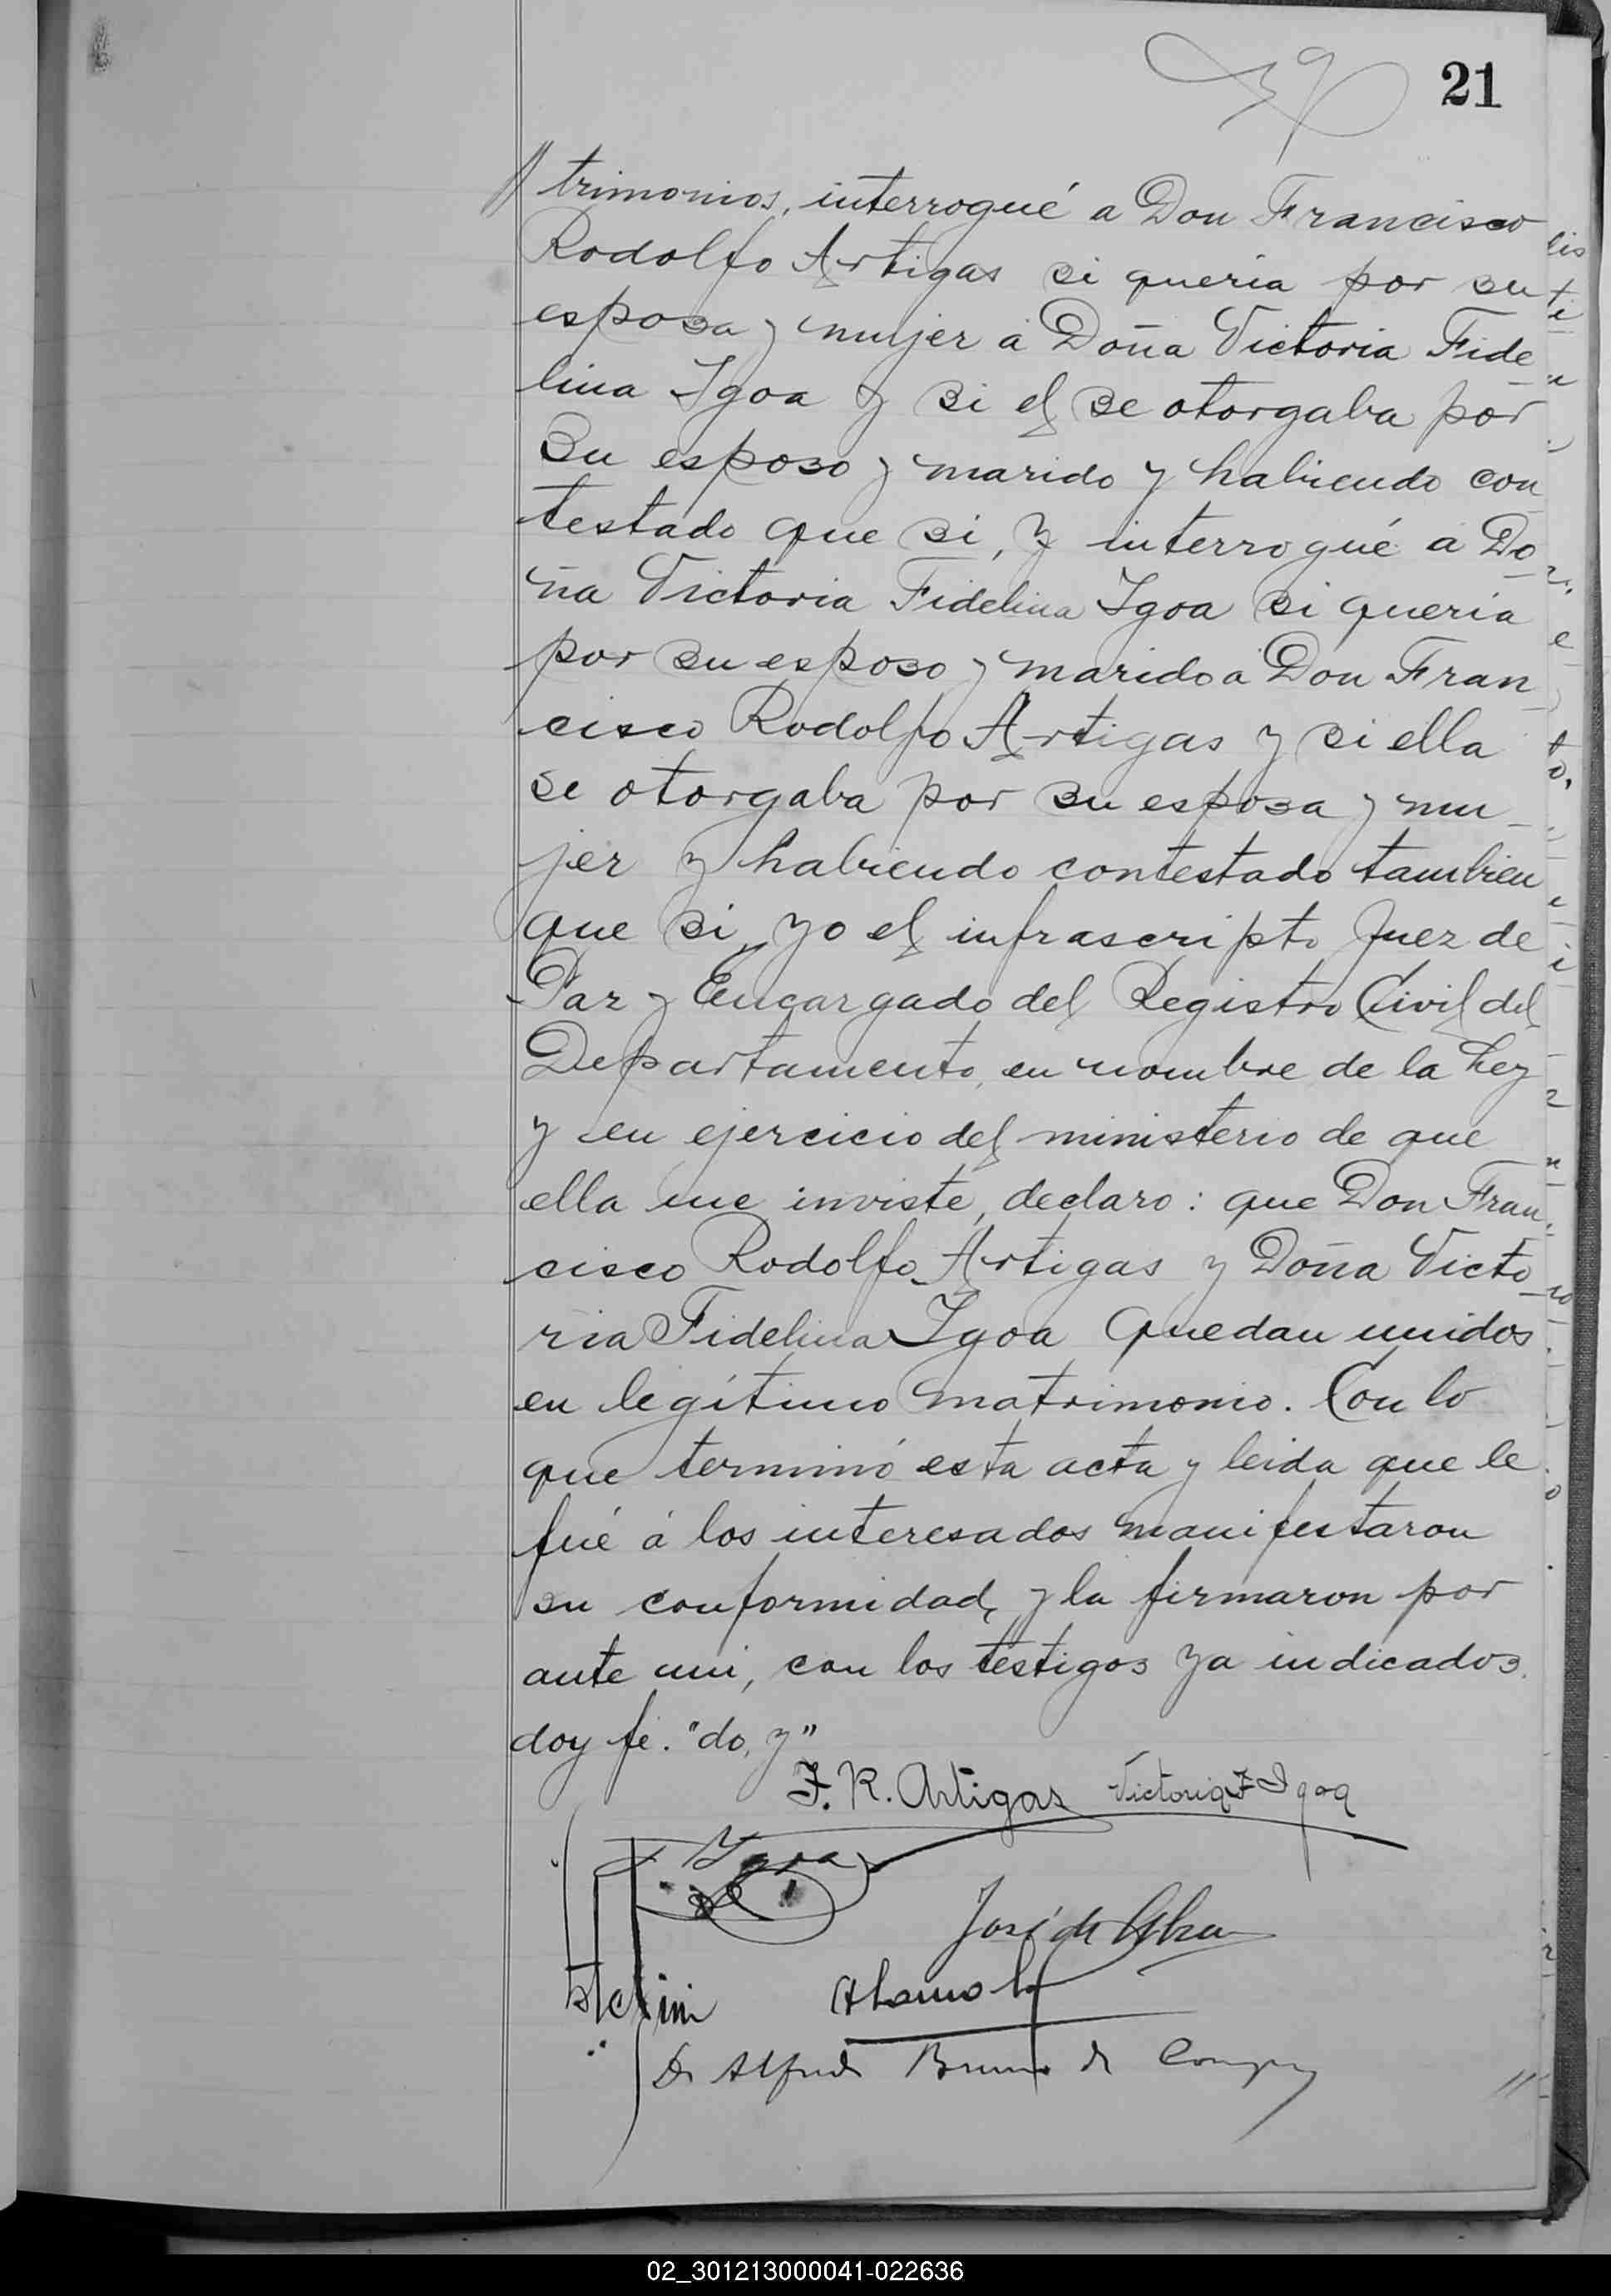 39
21
trimonios, interrogué a Don Francisco
Rodolfo Artigas si queria por su
esposa y mujer á Doña Victoria Fide
lina Igoa y si el se otorgaba por
su esposo y marido y habiendo con
testado que si, y interrogué á Do
ña Victoria Fidelina Igoa si queria
por su esposo y marido a Don Fran
cisco Rodolfo Artigas y si ella
se otorgaba por su esposa y mu-
jer y habiendo contestado tambien
que si, yo el infrascripto Juez de
Paz y Encargado del Registro Civil del
Departamento, en nombre de la Ley
y en ejercicio del ministerio de que
ella me inviste, declaro: que Don Fran
cisco Rodolfo Artigas y Doña Victo
ria Fidelina Igoa quedan unidos
en legítimo matrimonio. Con lo
que terminó esta acta y leida que le
fué á los interesados manifestaron
su conformidad, y la firmaron por
ante mi, con los testigos ya indicados
doy fé. "do, y"
F. R. Artigas Victoria F Igoa
Igoa
José de
Dr Alfredo Bruno de
02_301213000041-022636